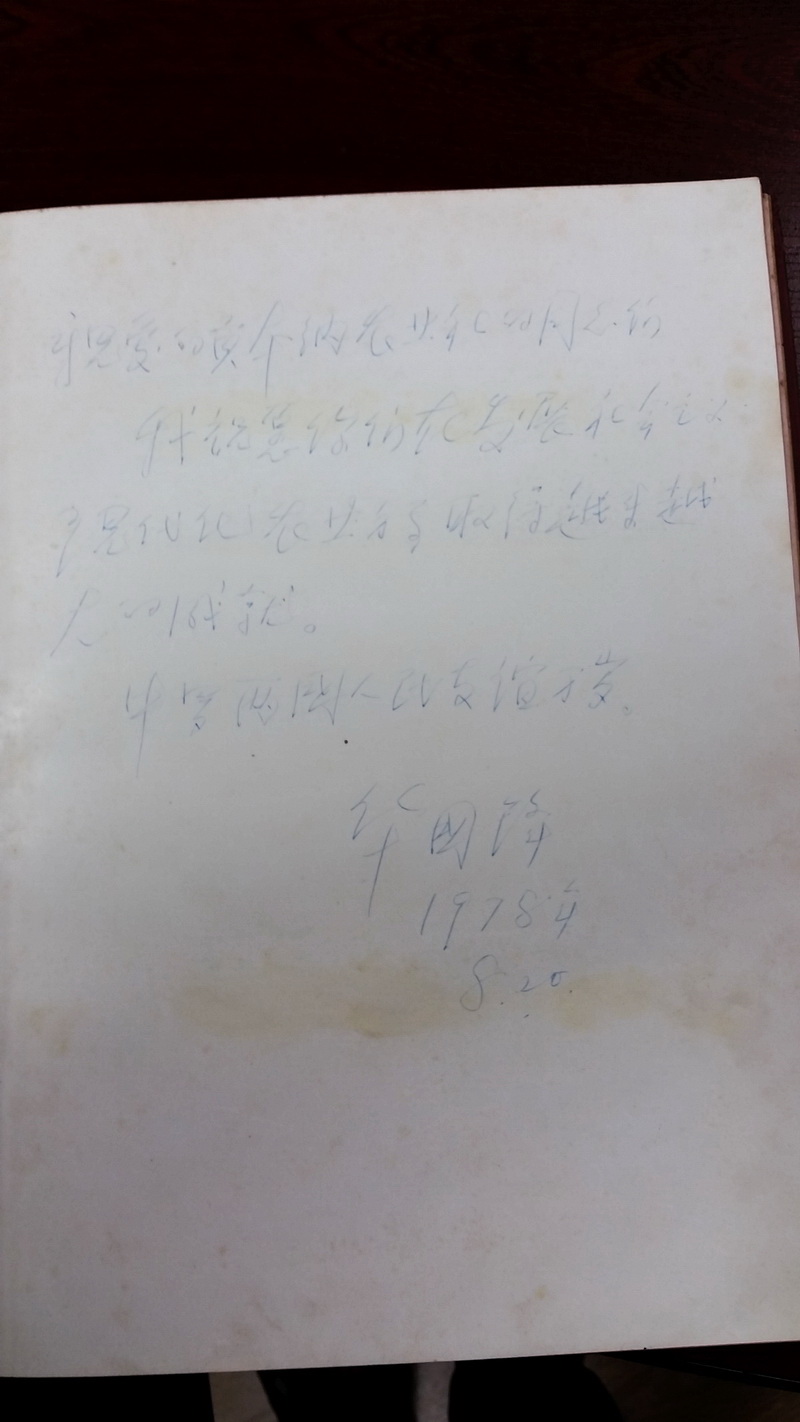 亲爱的贝尔纳农业化的同志们
我祝愿你们在发展社会主义
现代化农业方面取得越来越
大的成就。
中 两国人民友谊万岁。
华国锋
1978年
8.20.